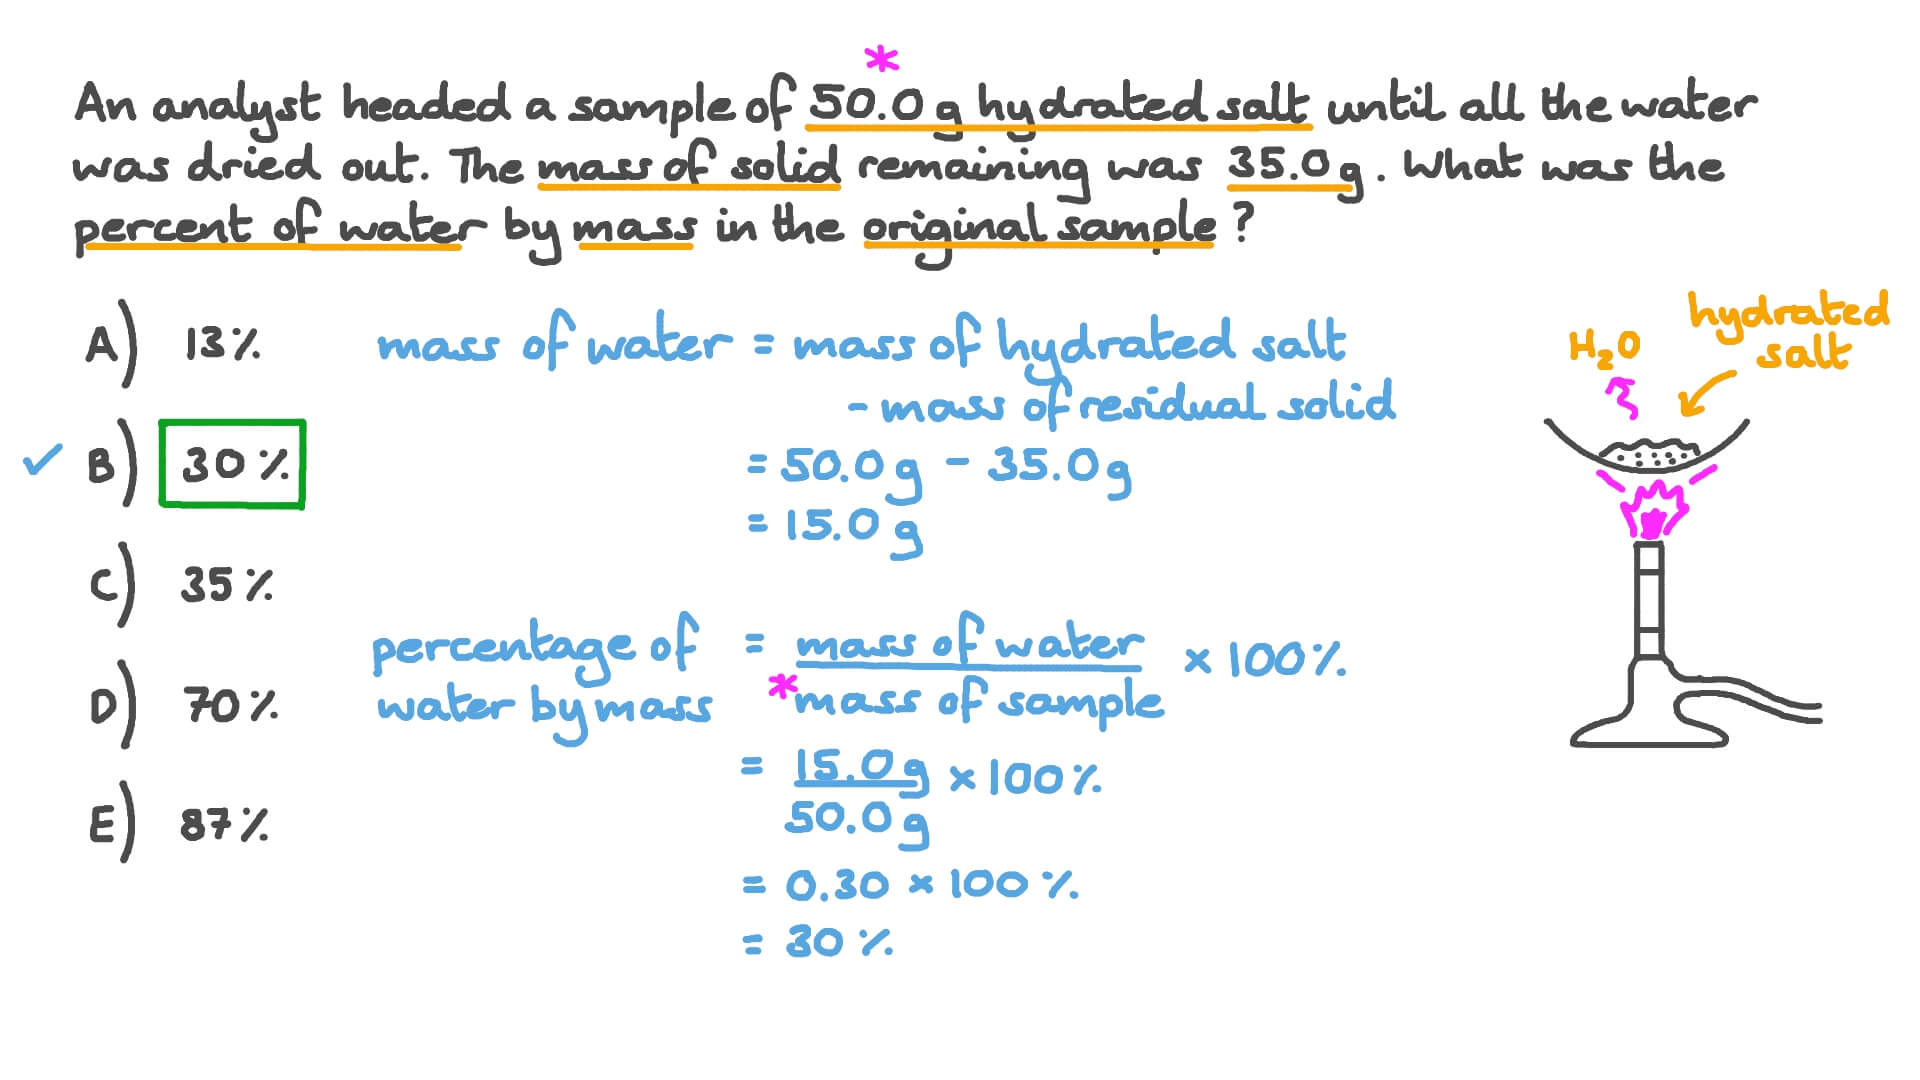 An analyst headed a sample of 50.0 g hydrated salt until all the water
was dried out. The mass of solid remaining was 35.0 g. What was the
percent of water by mass in the original sample?
A) 13%
B) 30%
C) 35%
D) 70%
E) 87%
mass of water = mass of hydrated salt
- mass of residual solid
= 50.0 g - 35.0 g
= 15.0 g
percentage of water by mass = mass of water / *mass of sample × 100%
= 15.0 g / 50.0 g × 100%
= 0.30 × 100%
= 30%
H₂O
hydrated
salt